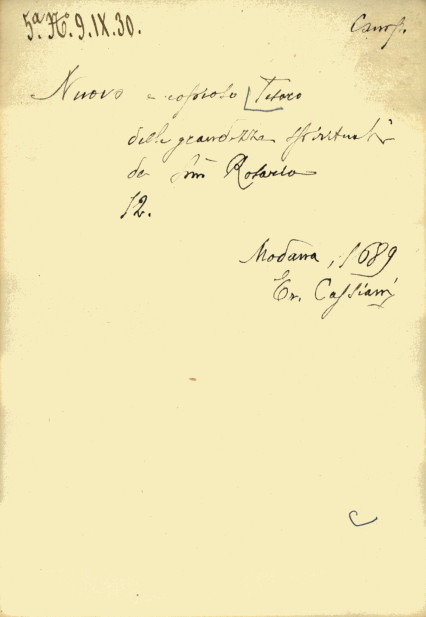 5.ª Nº 9.IX.30. Camp.
Nuovo e copioso Tesoro
delle grandezze spirituali
de Sm Rosario
12.
Modana, 1689
Er. Cassiani